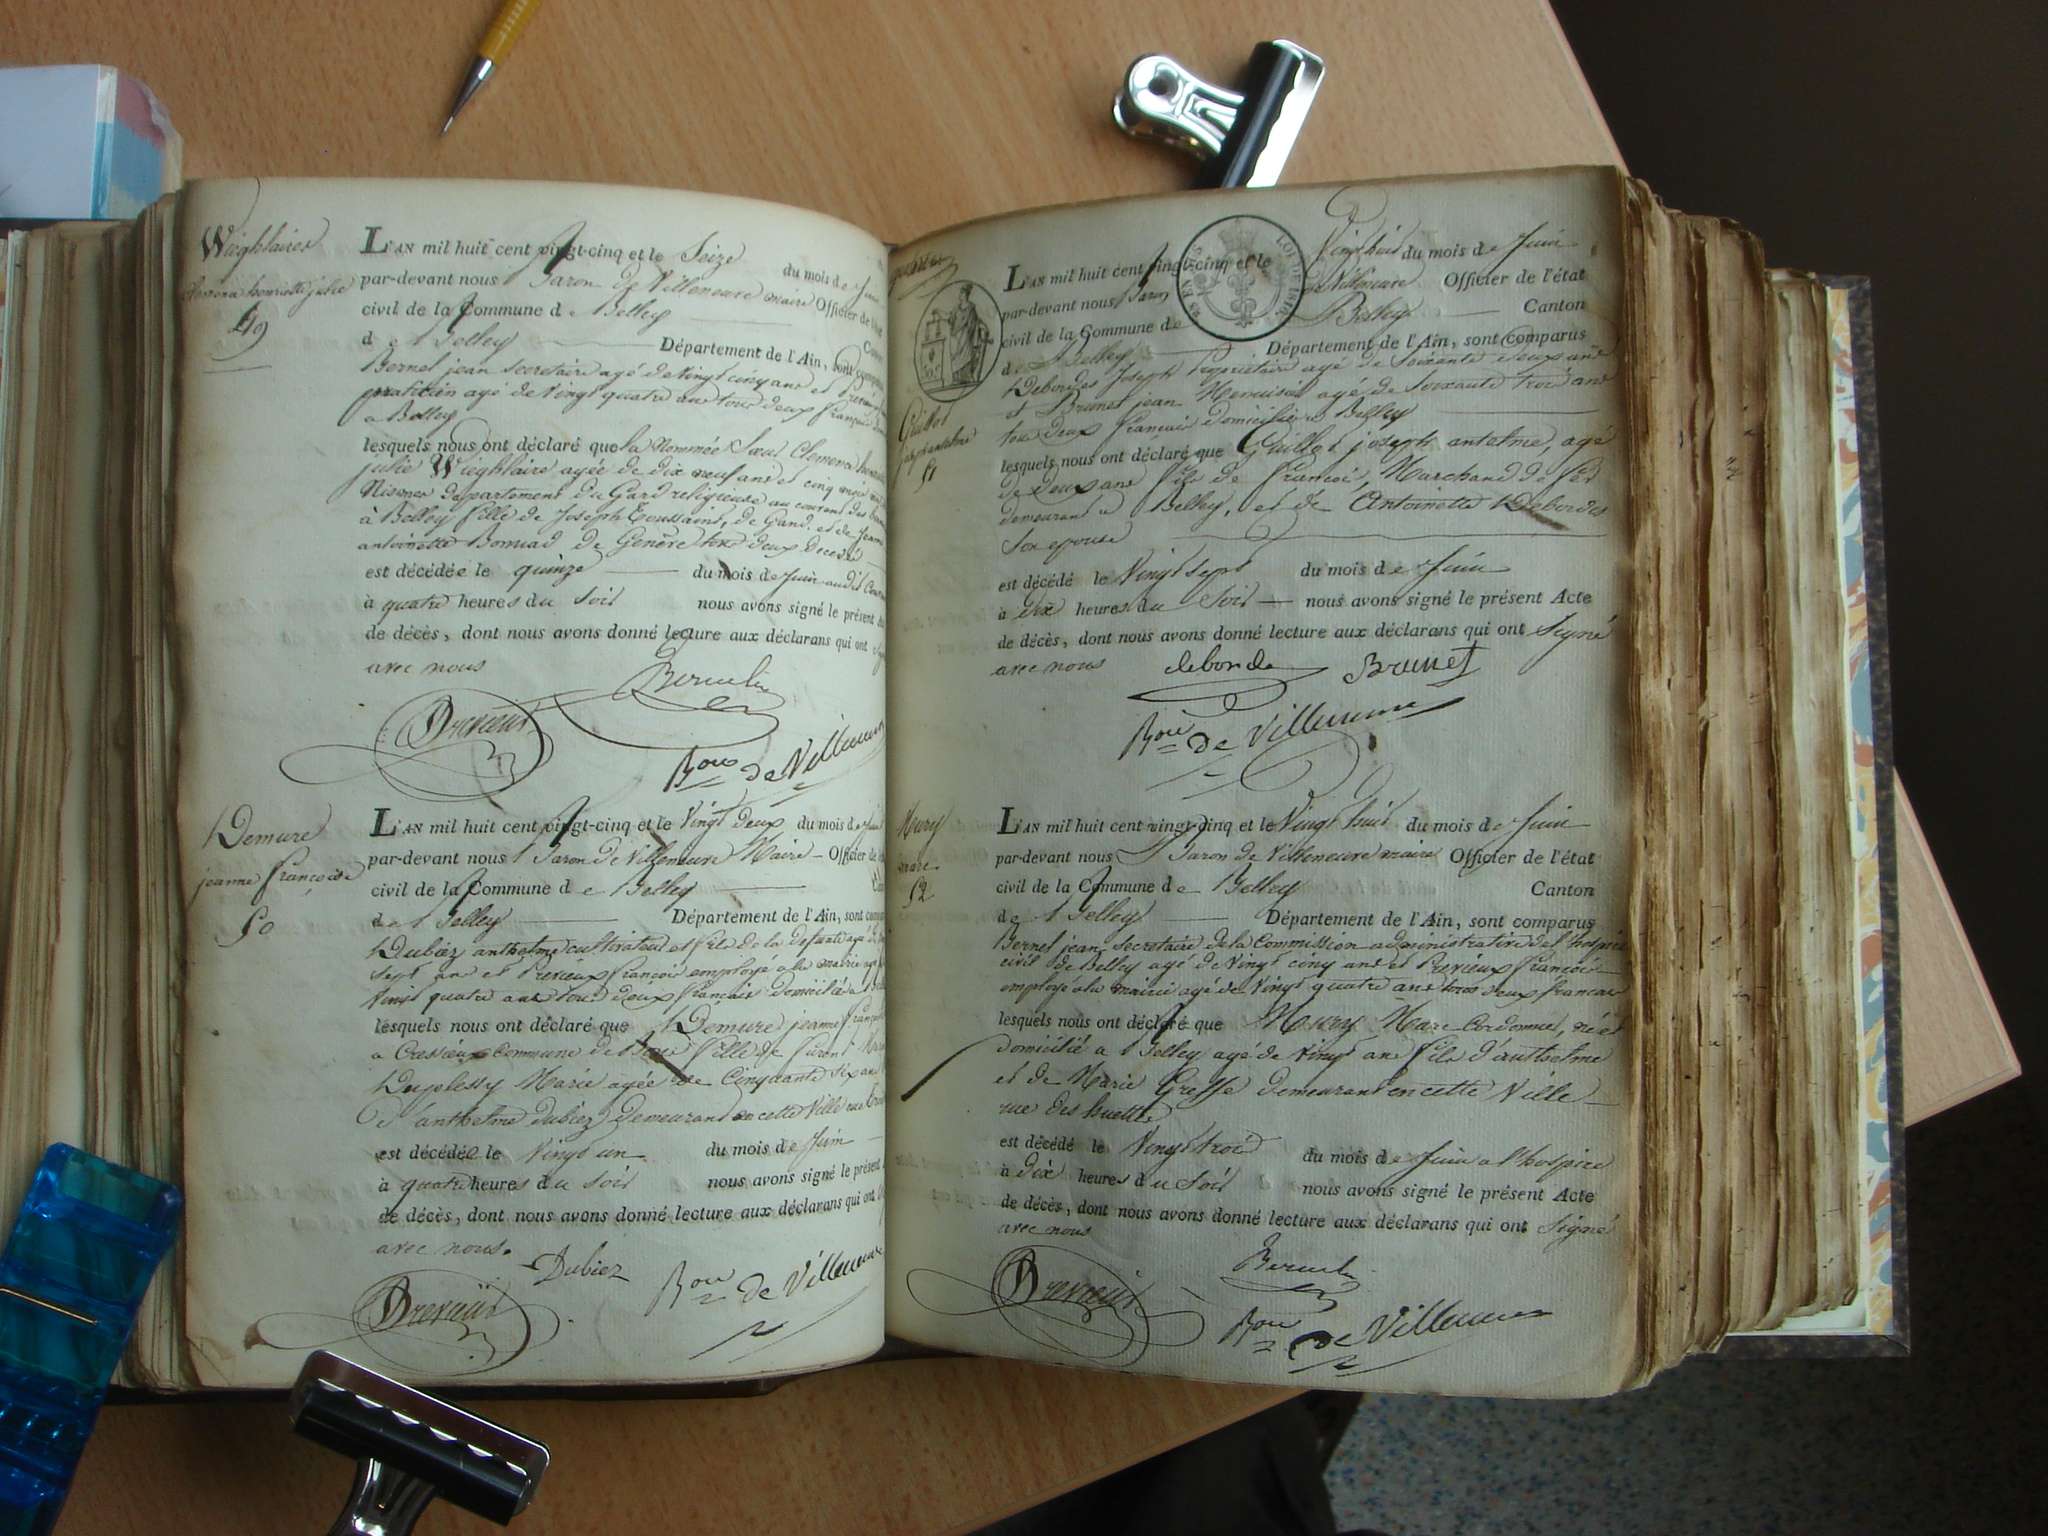 Wieghlaire
henriette julie
49
L'AN mil huit cent vingt-cinq et le Seize du mois de Juin
par-devant nous Baron de Villeneuve maire Officier de l'état
civil de la Commune de Belley
de Belley Département de l'Ain, sont comparus
Bernel jean secretaire agé de vingt cinq ans et
praticien agé de Vingt quatre ans tous deux français
a Belley
lesquels nous ont déclaré que la Nommée Sœur Clemence
julie Wieghlaire agée de dix neuf ans et cinq mois
departement du Gard religieuse au couvent des
à Belley fille de Joseph Toussaint, de Gand. et de Jeanne
antoinette de Genève tous deux décedés
est décédée le quinze du mois de Juin audit Couvent
à quatre heures du Soir nous avons signé le présent
de décès, dont nous avons donné lecture aux déclarans qui ont
avec nous
Bon de Villeneuve
Demure
jeanne françoise
50
L'AN mil huit cent vingt-cinq et le Vingt deux du mois de Juin
par-devant nous Baron de Villeneuve Maire Officier de
civil de la Commune de Belley
de Belley Département de l'Ain, sont
Dubiez anthelme cultivateur et fils de la defunte agé de
sept ans et Previeux françois employé a la mairie agé
Vingt quatre ans tous deux français domiciliés a
lesquels nous ont déclaré que Demure jeanne françoise
a Cressieux Commune de fille de
Duplessy Marie agée de Cinquante six ans
d'anthelme dubiez demeurant en cette Ville rue
est décédée le Vingt un du mois de Juin
à quatre heures du Soir nous avons signé le présent
de décès, dont nous avons donné lecture aux déclarans qui ont
avec nous.
Dubiez
Bon de Villeneuve
L'AN mil huit cent vingt-cinq et le Vingt huit du mois de Juin
par-devant nous Baron de Villeneuve Officier de l'état
civil de la Commune de Belley Canton
de Belley Département de l'Ain, sont comparus
Debordes Joseph Propriétaire agé de Soixante deux ans
et Brunet jean Menuisier agé de Soixante trois ans
tous deux français domiciliés a Belley
Guillot
jph anthelme
51
lesquels nous ont déclaré que Guillot joseph antelme, agé
de deux ans fils de françois, Marchand de fer
demeurant a Belley, et de Antoinette Debordes
Son epouse
est décédé le Vingt sept du mois de Juin
à dix heures du Soir nous avons signé le présent Acte
de décès, dont nous avons donné lecture aux déclarans qui ont Signé
avec nous
deborde Brunet
Bon de Villeneuve
Mury
marc
52
L'AN mil huit cent vingt-cinq et le Vingt huit du mois de Juin
par-devant nous Baron de Villeneuve maire Officier de l'état
civil de la Commune de Belley Canton
de Belley Département de l'Ain, sont comparus
Bernel jean secretaire de la Commission administrative de l'hospice
civil de Belley agé de Vingt cinq ans et Previeux françois
employé a la mairie agé de Vingt quatre ans tous deux français
lesquels nous ont déclaré que Mury Marc Cordonnier, né et
domicilié a Belley agé de Vingt ans fils d'anthelme
et de Marie Greffe demeurant en cette Ville
rue des
est décédé le Vingt trois du mois de Juin a l'hospice
à dix heures du Soir nous avons signé le présent Acte
de décès, dont nous avons donné lecture aux déclarans qui ont Signé
avec nous
Bon de Villeneuve